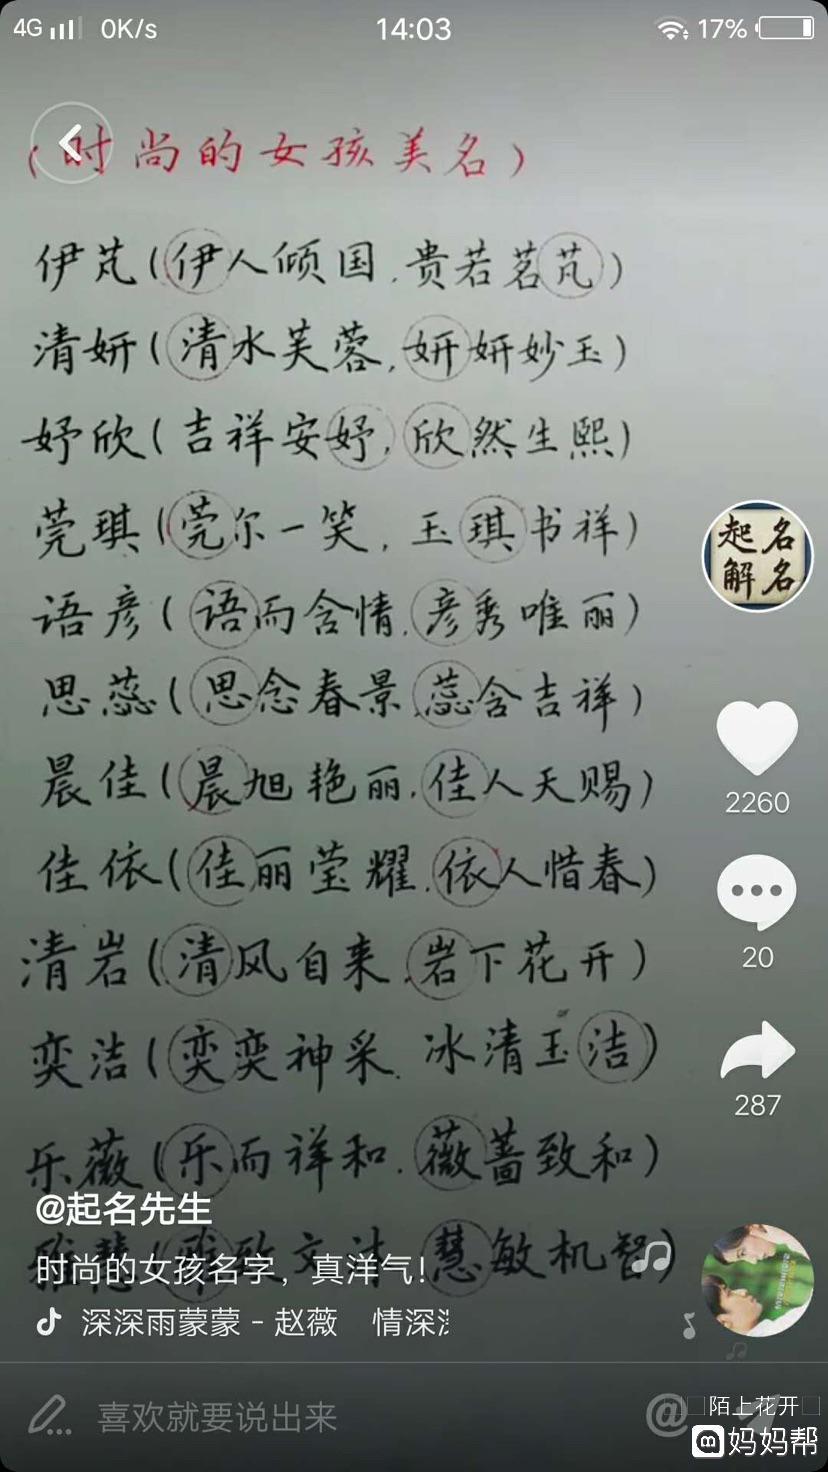 4G 0K/s 14:03 17%
(时尚的女孩美名)
伊芃(伊人倾国.贵若茗芃)
清妍(清水芙蓉,妍妍妙玉)
妤欣(吉祥安妤,欣然生熙)
莞琪(莞尔一笑,玉琪书祥)
起名
解名
语彦(语而含情.彦秀唯丽)
思蕊(思念春景.蕊含吉祥)
2260
晨佳(晨旭艳丽.佳人天赐)
佳依(佳丽莹耀.依人惜春)
20
清岩(清风自来.岩下花开)
奕洁(奕奕神采.冰清玉洁)
287
乐薇(乐而祥和.薇蔷致和)
@起名先生
雅慧(雅致文 慧敏机智)
时尚的女孩名字，真洋气!
深深雨蒙蒙 - 赵薇 情深深
喜欢就要说出来
@
陌上花开
妈妈帮